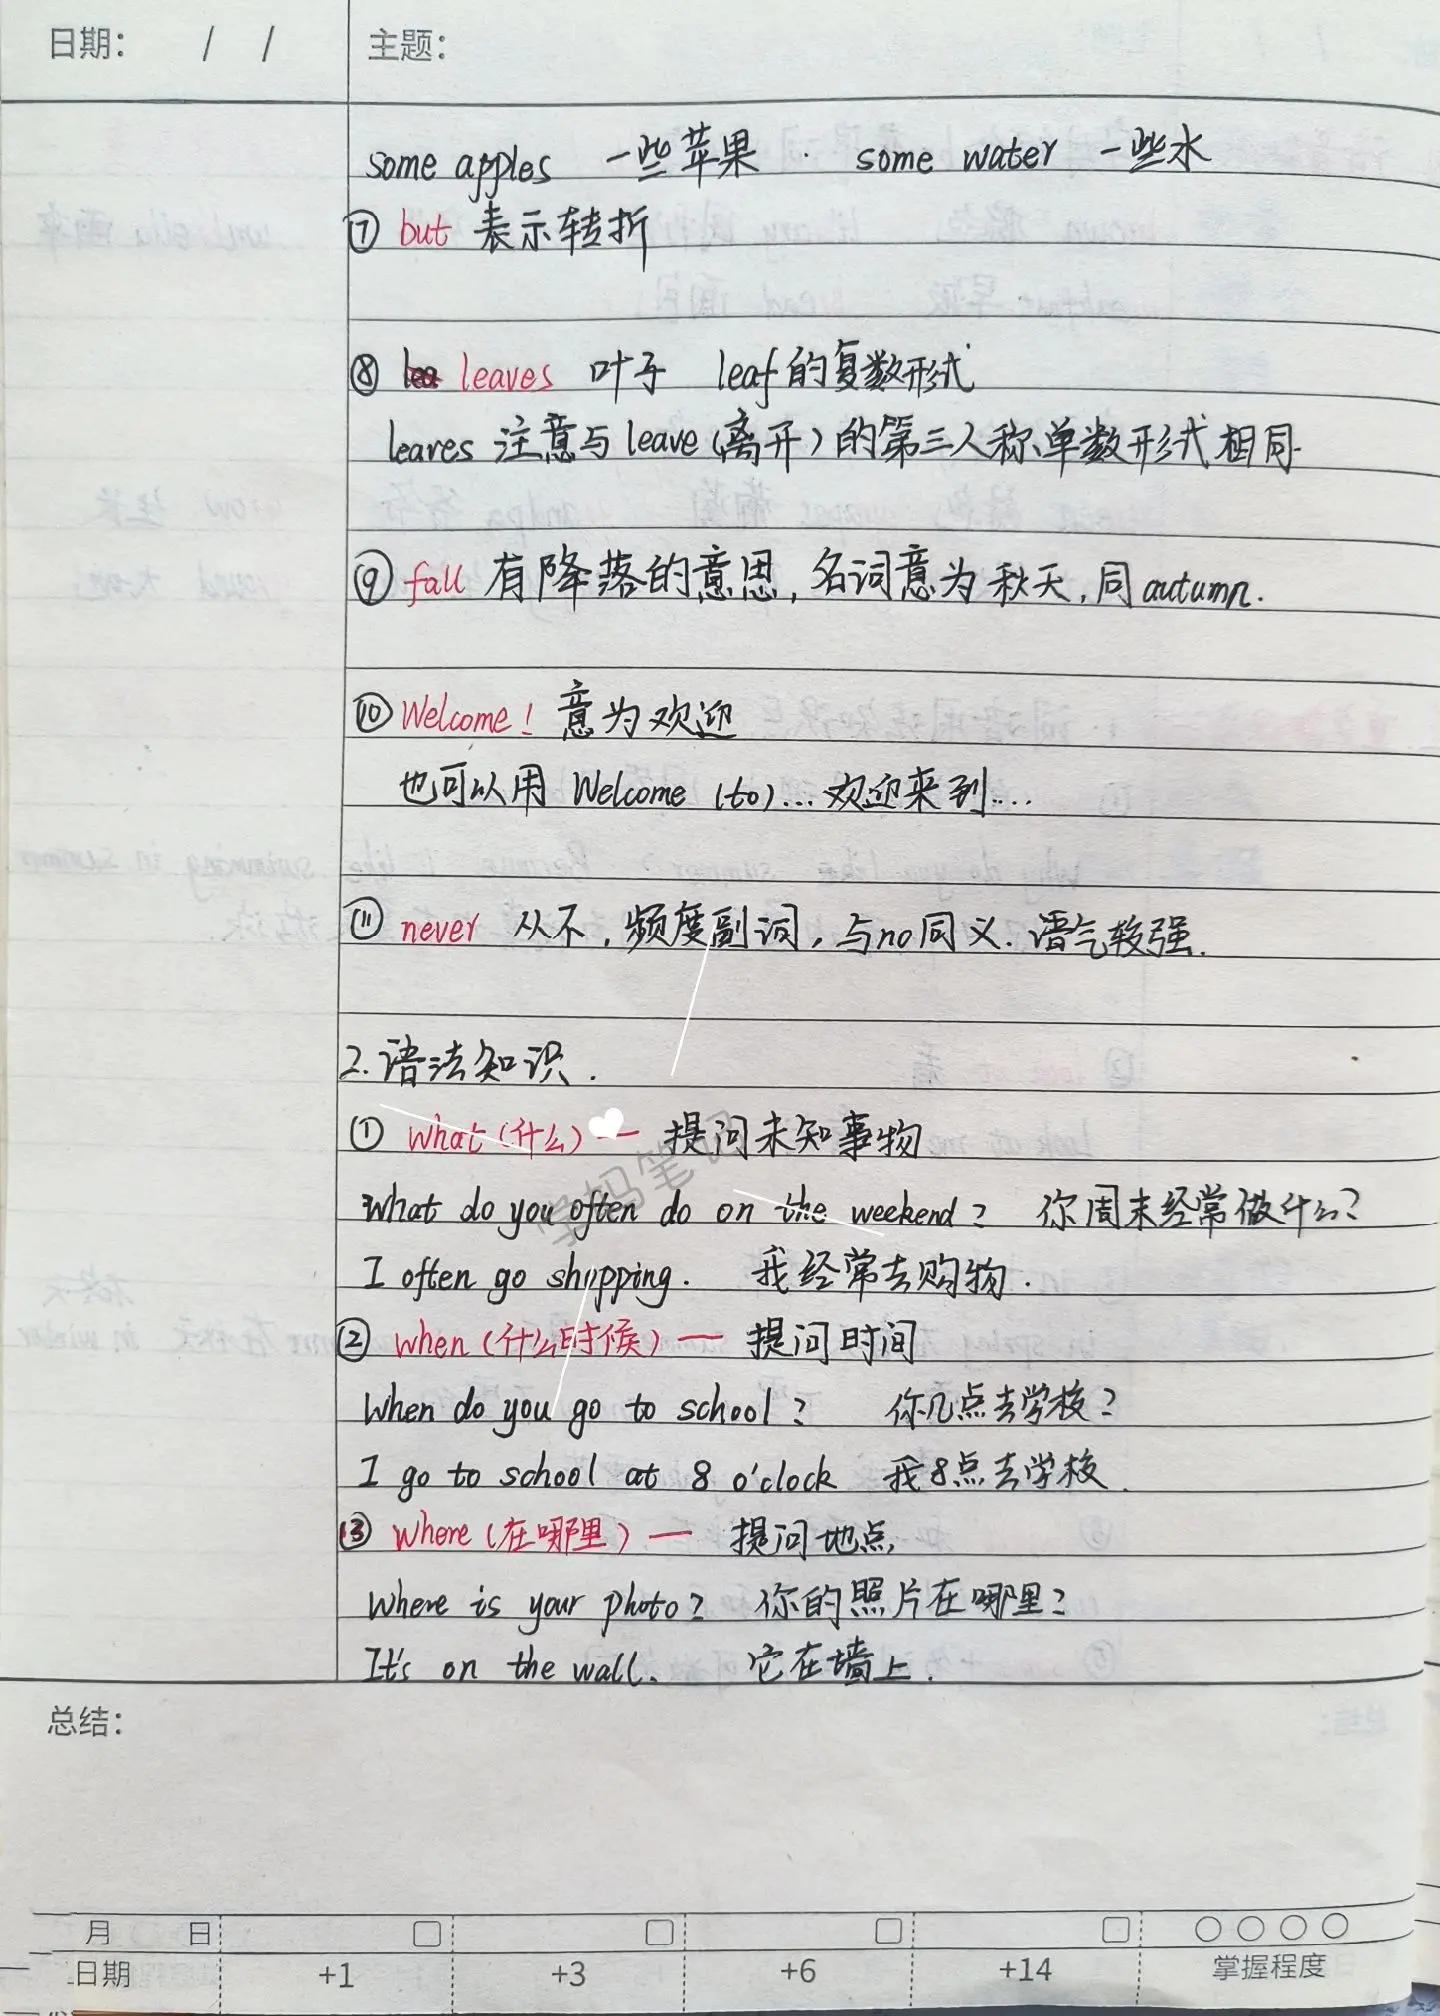 日期: / / 主题:
some apples 一些苹果 . some water 一些水
⑦ but 表示转折
⑧ leaves 叶子 leaf的复数形式
leaves 注意与leave(离开)的第三人称单数形式相同.
⑨ fall 有降落的意思,名词意为秋天,同autumn.
⑩ Welcome! 意为欢迎
也可以用 Welcome (to)...欢迎来到...
⑪ never 从不,频度副词,与no同义.语气较强.
2.语法知识.
① what(什么)— 提问未知事物
What do you often do on the weekend? 你周末经常做什么?
I often go shopping. 我经常去购物.
② when(什么时候)— 提问时间
When do you go to school? 你几点去学校?
I go to school at 8 o'clock 我8点去学校.
③ where(在哪里)— 提问地点
Where is your photo? 你的照片在哪里?
It's on the wall. 它在墙上.
总结:
月 日
日期 +1 +3 +6 +14 掌握程度